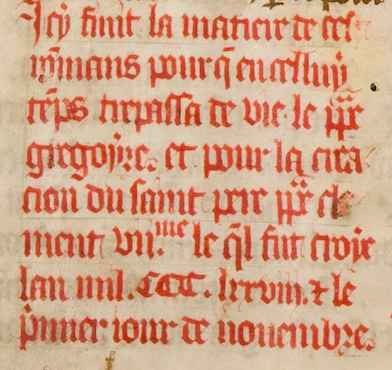 Icy finit la matiere de cel
rõmans pour q̃ en celluy
tẽps trepassa de vie le ppe
gregoyre. et pour la crea
cion du saint pere ppe cle
ment vii.me le q̃l fut croye
lan mil. CCC. lxxviii. ⁊ le
p̃mier iour de nouembre.